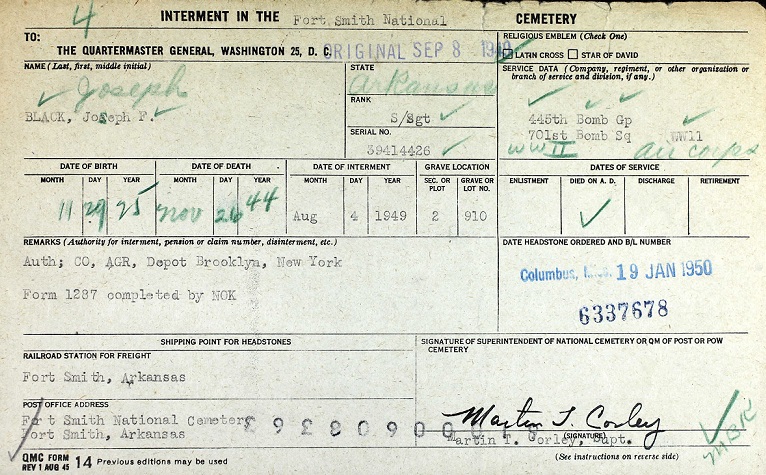 4
INTERMENT IN THE Fort Smith National CEMETERY
TO:
THE QUARTERMASTER GENERAL, WASHINGTON 25, D. C.
ORIGINAL SEP 8
RELIGIOUS EMBLEM (Check One)
LATIN CROSS STAR OF DAVID
NAME (Last, first, middle initial)
Joseph
BLACK, Joseph F.
STATE
Arkansas
RANK
S/Sgt
SERIAL NO.
39414426
SERVICE DATA (Company, regiment, or other organization or branch of service and division, if any.)
445th Bomb Gp
701st Bomb Sq WW11
WW II air corps
DATE OF BIRTH
MONTH DAY YEAR
11 29 25
DATE OF DEATH
MONTH DAY YEAR
Nov 26 44
DATE OF INTERMENT
MONTH DAY YEAR
Aug 4 1949
GRAVE LOCATION
SEC. OR PLOT GRAVE OR LOT NO.
2 910
DATES OF SERVICE
ENLISTMENT DIED ON A. D. DISCHARGE RETIREMENT
REMARKS (Authority for interment, pension or claim number, disinterment, etc.)
Auth; CO, AGR, Depot Brooklyn, New York
Form 1287 completed by NOK
DATE HEADSTONE ORDERED AND B/L NUMBER
Columbus, 19 JAN 1950
6337678
SHIPPING POINT FOR HEADSTONES
RAILROAD STATION FOR FREIGHT
Fort Smith, Arkansas
POST OFFICE ADDRESS
Fort Smith National Cemetery
Fort Smith, Arkansas
SIGNATURE OF SUPERINTENDENT OF NATIONAL CEMETERY OR QM OF POST OR POW CEMETERY
Martin T. Corley
Martin T. Corley, Supt.
(SIGNATURE)
MBK
QMC FORM
REV 1 AUG 45 14 Previous editions may be used
(See instructions on reverse side)